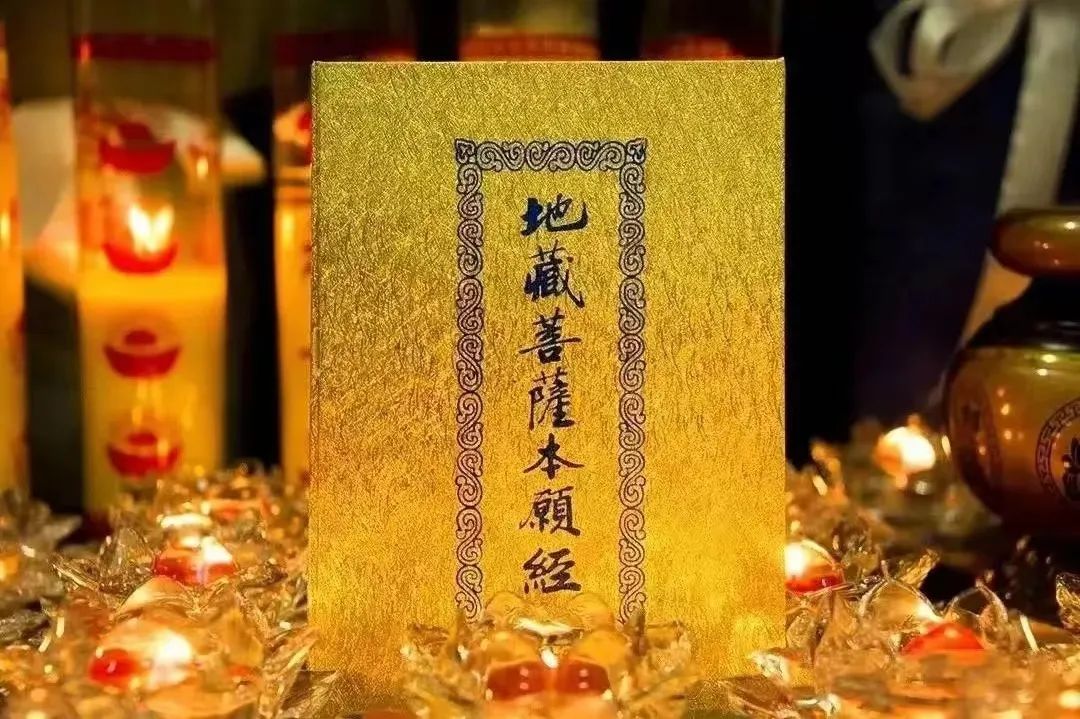 地藏菩薩本願経